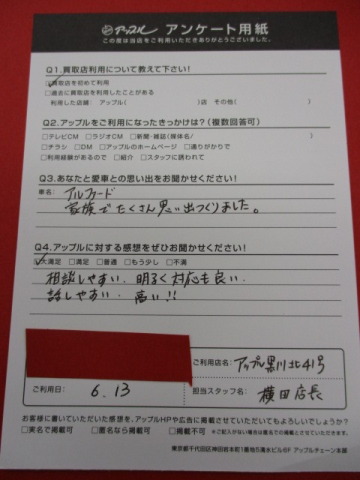 アップル アンケート用紙
この度は当店をご利用いただきありがとうございました。
Q1.買取店利用について教えて下さい!
☑買取店を初めて利用
□過去に買取店を利用したことがある
利用した店舗: アップル( )店 その他( )
Q2.アップルをご利用になったきっかけは?(複数回答可)
□テレビCM □ラジオCM □新聞・雑誌(媒体名/ )
□チラシ □DM □アップルのホームページ □通りがかりで
□利用経験があるので □紹介 □スタッフに誘われて
Q3.あなたと愛車との思い出をお聞かせください!
車名: アルファード
家族でたくさん思い出つくりました。
Q4.アップルに対する感想をぜひお聞かせください!
☑大満足 □満足 □普通 □もう少し □不満
相談しやすい、明るく対応も良い、
話しやすい、高い!!
ご利用店名: アップル黒川北41号
ご利用日: 6.13
担当スタッフ名: 横田店長
お客様に書いていただいた感想を、アップルHPや広告に掲載させていただいてもよろしいでしょうか?
□実名で掲載可 □匿名なら掲載可 □掲載不可 ※ご記入がない場合は匿名での掲載とさせていただきます。
東京都千代田区神田岩本町1番地5清水ビル6F アップルチェーン本部